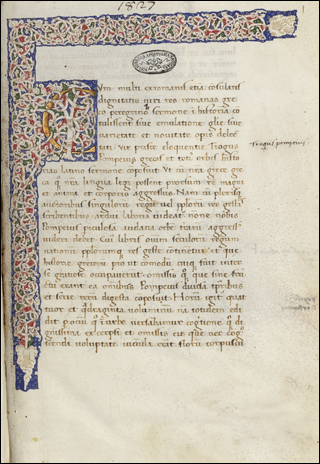 1827
1
um multi ex romanis etiā cōsularis
dignitatis uiri res romanas gre
co peregrino sermone ī historiā cō
tulissent siue emulatione gliē siue
uarietate et nouitate opis delec
tati. Vir prisce eloquentie Trogus
Trogus pompeius
Pompeius grecas et toti orbis histo
rias latino sermone cōposuit. Ut cū nrā grece gre
ca q nrā lingua legi possent prorsum rē magni
et animi et corporis aggressus. Nam cū plerisq
auctoribus singulorū regū uel pplorū res gestas
scribentibus ardui laboris uideat nonne nobis
Pompeius hercūlea audacia orbē terrarū aggressus
uideri debet Cui libris oīum seculorū regum
nationū pplorumq res geste continetur et que
historie grecorū pro ut comodū cuiq fuit inter
se gratate occupauerunt omissis que sine fru
ctu erant ea omnibus Pompeius diuisa tpribus
et serie rerū digesta cōposuit. Horū igit quat
tuor et quadraginta uoluminū nā totidem edi
dit p ociū q ī urbe uersabamur cogtione q di
gnissima excerpsi et omissis eis que nec cog
scendi uoluptate iucūda erāt florū corpuscul